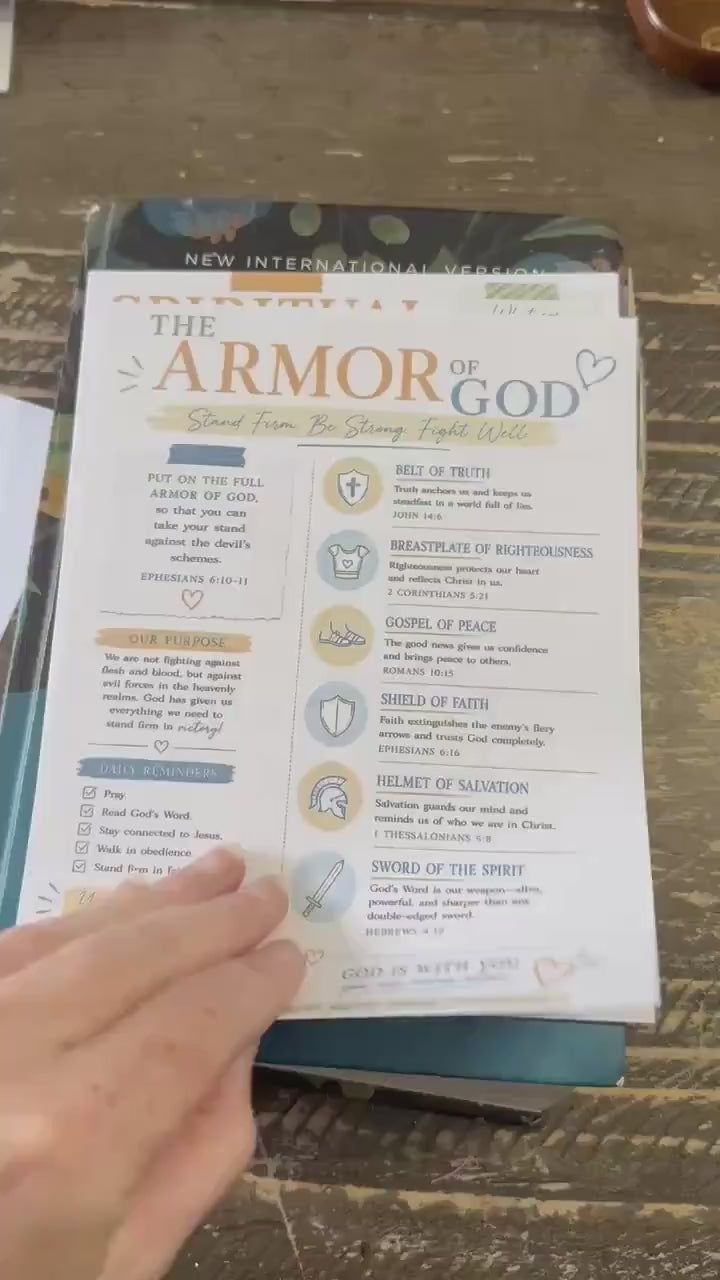 NEW INTERNATIONAL VERSION
SPIRITUAL
THE
ARMOR OF
GOD
Stand Firm Be Strong Fight Well
PUT ON THE FULL
ARMOR OF GOD,
so that you can
take your stand
against the devil's
schemes.
EPHESIANS 6:10-11
OUR PURPOSE
We are not fighting against
flesh and blood, but against
evil forces in the heavenly
realms. God has given us
everything we need to
stand firm in victory!
DAILY REMINDERS
Pray.
Read God's Word.
Stay connected to Jesus.
Walk in obedience
Stand firm in
BELT OF TRUTH
Truth anchors us and keeps us
steadfast in a world full of lies.
JOHN 14:6
BREASTPLATE OF RIGHTEOUSNESS
Righteousness protects our heart
and reflects Christ in us.
2 CORINTHIANS 5:21
GOSPEL OF PEACE
The good news gives us confidence
and brings peace to others.
ROMANS 10:15
SHIELD OF FAITH
Faith extinguishes the enemy's fiery
arrows and trusts God completely.
EPHESIANS 6:16
HELMET OF SALVATION
Salvation guards our mind and
reminds us of who we are in Christ.
1 THESSALONIANS 5:8
SWORD OF THE SPIRIT
God's Word is our weapon—alive,
powerful, and sharper than any
double-edged sword.
HEBREWS 4:12
GOD IS WITH YOU